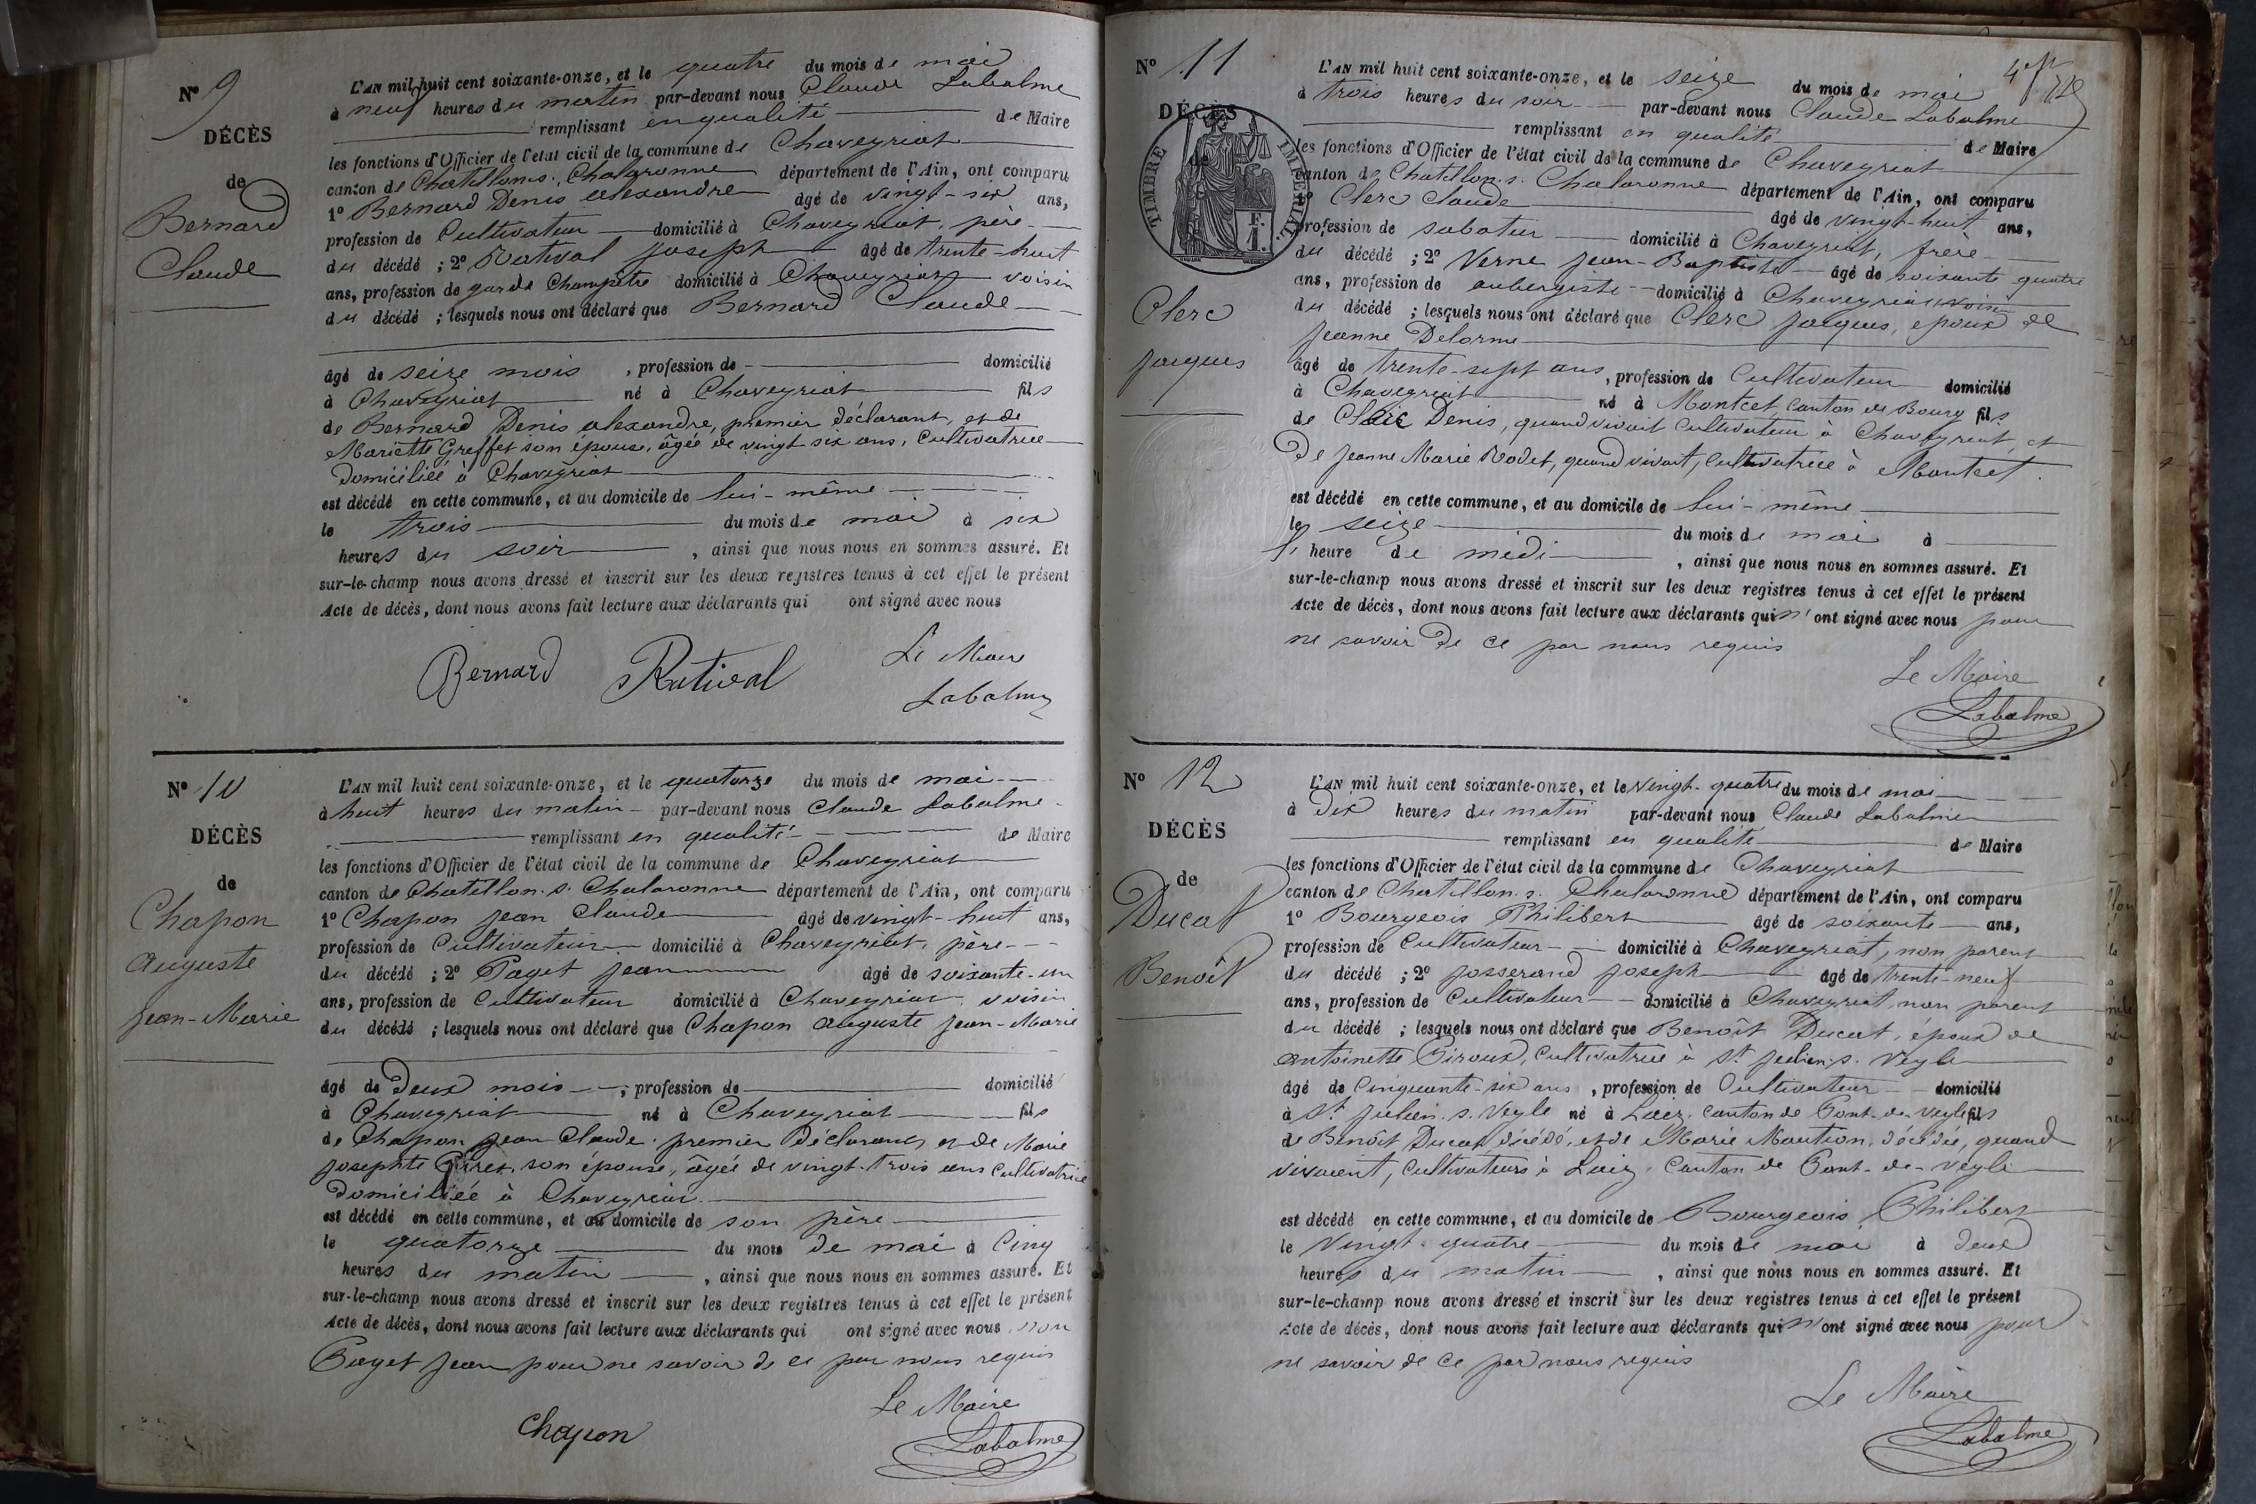 N° 9
DÉCÈS
de
Bernard
Claude
L'AN mil huit cent soixante-onze, et le quatre du mois de mai
à neuf heures du matin par-devant nous Claude Labalme
remplissant en qualité de Maire
les fonctions d'Officier de l'état civil de la commune de Chaveyriat
canton de Chatillon s. Chalaronne département de l'Ain, ont comparu
1° Bernard Denis alexandre âgé de vingt-six ans,
profession de Cultivateur domicilié à Chaveyriat, père
du décédé ; 2° Ratival Joseph âgé de trente-huit
ans, profession de garde Champêtre domicilié à Chaveyriat voisin
du décédé ; lesquels nous ont déclaré que Bernard Claude
âgé de seize mois , profession de domicilié
à Chaveyriat né à Chaveyriat fils
de Bernard Denis alexandre, premier déclarant, et de
Mariette Greffet son épouse, âgée de vingt six ans, Cultivatrice
Domiciliée à Chaveyriat
est décédé en cette commune, et au domicile de lui-même
le trois du mois de mai à six
heures du soir , ainsi que nous nous en sommes assuré. Et
sur-le-champ nous avons dressé et inscrit sur les deux registres tenus à cet effet le présent
Acte de décès, dont nous avons fait lecture aux déclarants qui ont signé avec nous
Bernard Ratival Le Maire
Labalme
N° 10
DÉCÈS
de
Chapon
Auguste
Jean-Marie
L'AN mil huit cent soixante-onze, et le quatorze du mois de mai
à huit heures du matin par-devant nous Claude Labalme
remplissant en qualité de Maire
les fonctions d'Officier de l'état civil de la commune de Chaveyriat
canton de Chatillon s. Chalaronne département de l'Ain, ont comparu
1° Chapon Jean Claude âgé de vingt-huit ans,
profession de Cultivateur domicilié à Chaveyriat, père
du décédé ; 2° Paget Jean âgé de soixante-un
ans, profession de Cultivateur domicilié à Chaveyriat voisin
du décédé ; lesquels nous ont déclaré que Chapon auguste Jean-Marie
âgé de Deux mois , profession de domicilié
à Chaveyriat né à Chaveyriat fils
de Chapon Jean Claude premier déclarant et de Marie
Josephte son épouse, âgée de vingt-trois ans Cultivatrice
Domiciliée à Chaveyriat
est décédé en cette commune, et au domicile de son père
le quatorze du mois de mai à Cinq
heures du matin , ainsi que nous nous en sommes assuré. Et
sur-le-champ nous avons dressé et inscrit sur les deux registres tenus à cet effet le présent
Acte de décès, dont nous avons fait lecture aux déclarants qui ont signé avec nous non
Paget Jean pour ne savoir de ce par nous requis
Le Maire
Chapon Labalme
N° 11
DÉCÈS
de
TIMBRE IMPÉRIAL
F.
1.
Clerc
Jacques
L'AN mil huit cent soixante-onze, et le seize du mois de mai
à trois heures du soir par-devant nous Claude Labalme
remplissant en qualité de Maire
les fonctions d'Officier de l'état civil de la commune de Chaveyriat
canton de Chatillon s. Chalaronne département de l'Ain, ont comparu
1° Clerc Claude âgé de vingt-huit ans,
profession de sabotier domicilié à Chaveyriat, frère
du décédé ; 2° Verne Jean-Baptiste âgé de soixante quatre
ans, profession de aubergiste domicilié à Chaveyriat, voisin
du décédé ; lesquels nous ont déclaré que Clerc Jacques, époux de
Jeanne Delorme
âgé de trente-sept ans , profession de Cultivateur domicilié
à Chaveyriat né à Montcet, Canton de Bourg fils
de Clerc Denis, quand vivait Cultivateur à Chaveyriat, et
De Jeanne Marie Rodet, quand vivait, Cultivatrice à Montcet
est décédé en cette commune, et au domicile de lui-même
le seize du mois de mai à
l' heure de midi , ainsi que nous nous en sommes assuré. Et
sur-le-champ nous avons dressé et inscrit sur les deux registres tenus à cet effet le présent
Acte de décès, dont nous avons fait lecture aux déclarants qui n'ont signé avec nous pour
ne savoir de ce par nous requis
Le Maire
Labalme
N° 12
DÉCÈS
de
Ducat
Benoît
L'AN mil huit cent soixante-onze, et le vingt-quatre du mois de mai
à Dix heures du matin par-devant nous Claude Labalme
remplissant en qualité de Maire
les fonctions d'Officier de l'état civil de la commune de Chaveyriat
canton de Chatillon s. Chalaronne département de l'Ain, ont comparu
1° Bourgeois Philibert âgé de soixante ans,
profession de Cultivateur domicilié à Chaveyriat, non parent
du décédé ; 2° Josserand Joseph âgé de trente-neuf
ans, profession de Cultivateur domicilié à Chaveyriat, non parent
du décédé ; lesquels nous ont déclaré que Benoît Ducat, époux de
antoinette Giroud, Cultivatrice à St Julien s. Veyle
âgé de Cinquante-six ans , profession de Cultivateur domicilié
à St Julien s. Veyle né à Laiz, canton de Pont-de-Veyle fils
de Benoît Ducat décédé, et de Marie Moution, décédée, quand
vivaient, Cultivateurs à Laiz, Canton de Pont-de-Veyle
est décédé en cette commune, et au domicile de Bourgeois Philibert
le Vingt-quatre du mois de mai à deux
heures du matin , ainsi que nous nous en sommes assuré. Et
sur-le-champ nous avons dressé et inscrit sur les deux registres tenus à cet effet le présent
Acte de décès, dont nous avons fait lecture aux déclarants qui n'ont signé avec nous pour
ne savoir de ce par nous requis
Le Maire
Labalme